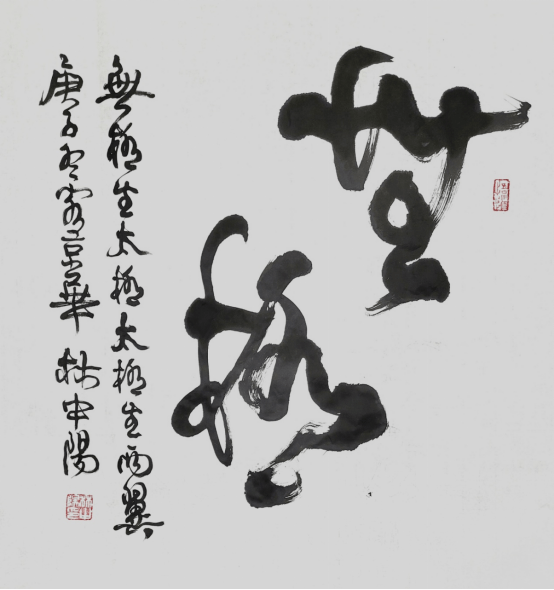 無極
無極生太極太極生兩翼
庚子冬客京華 林中陽